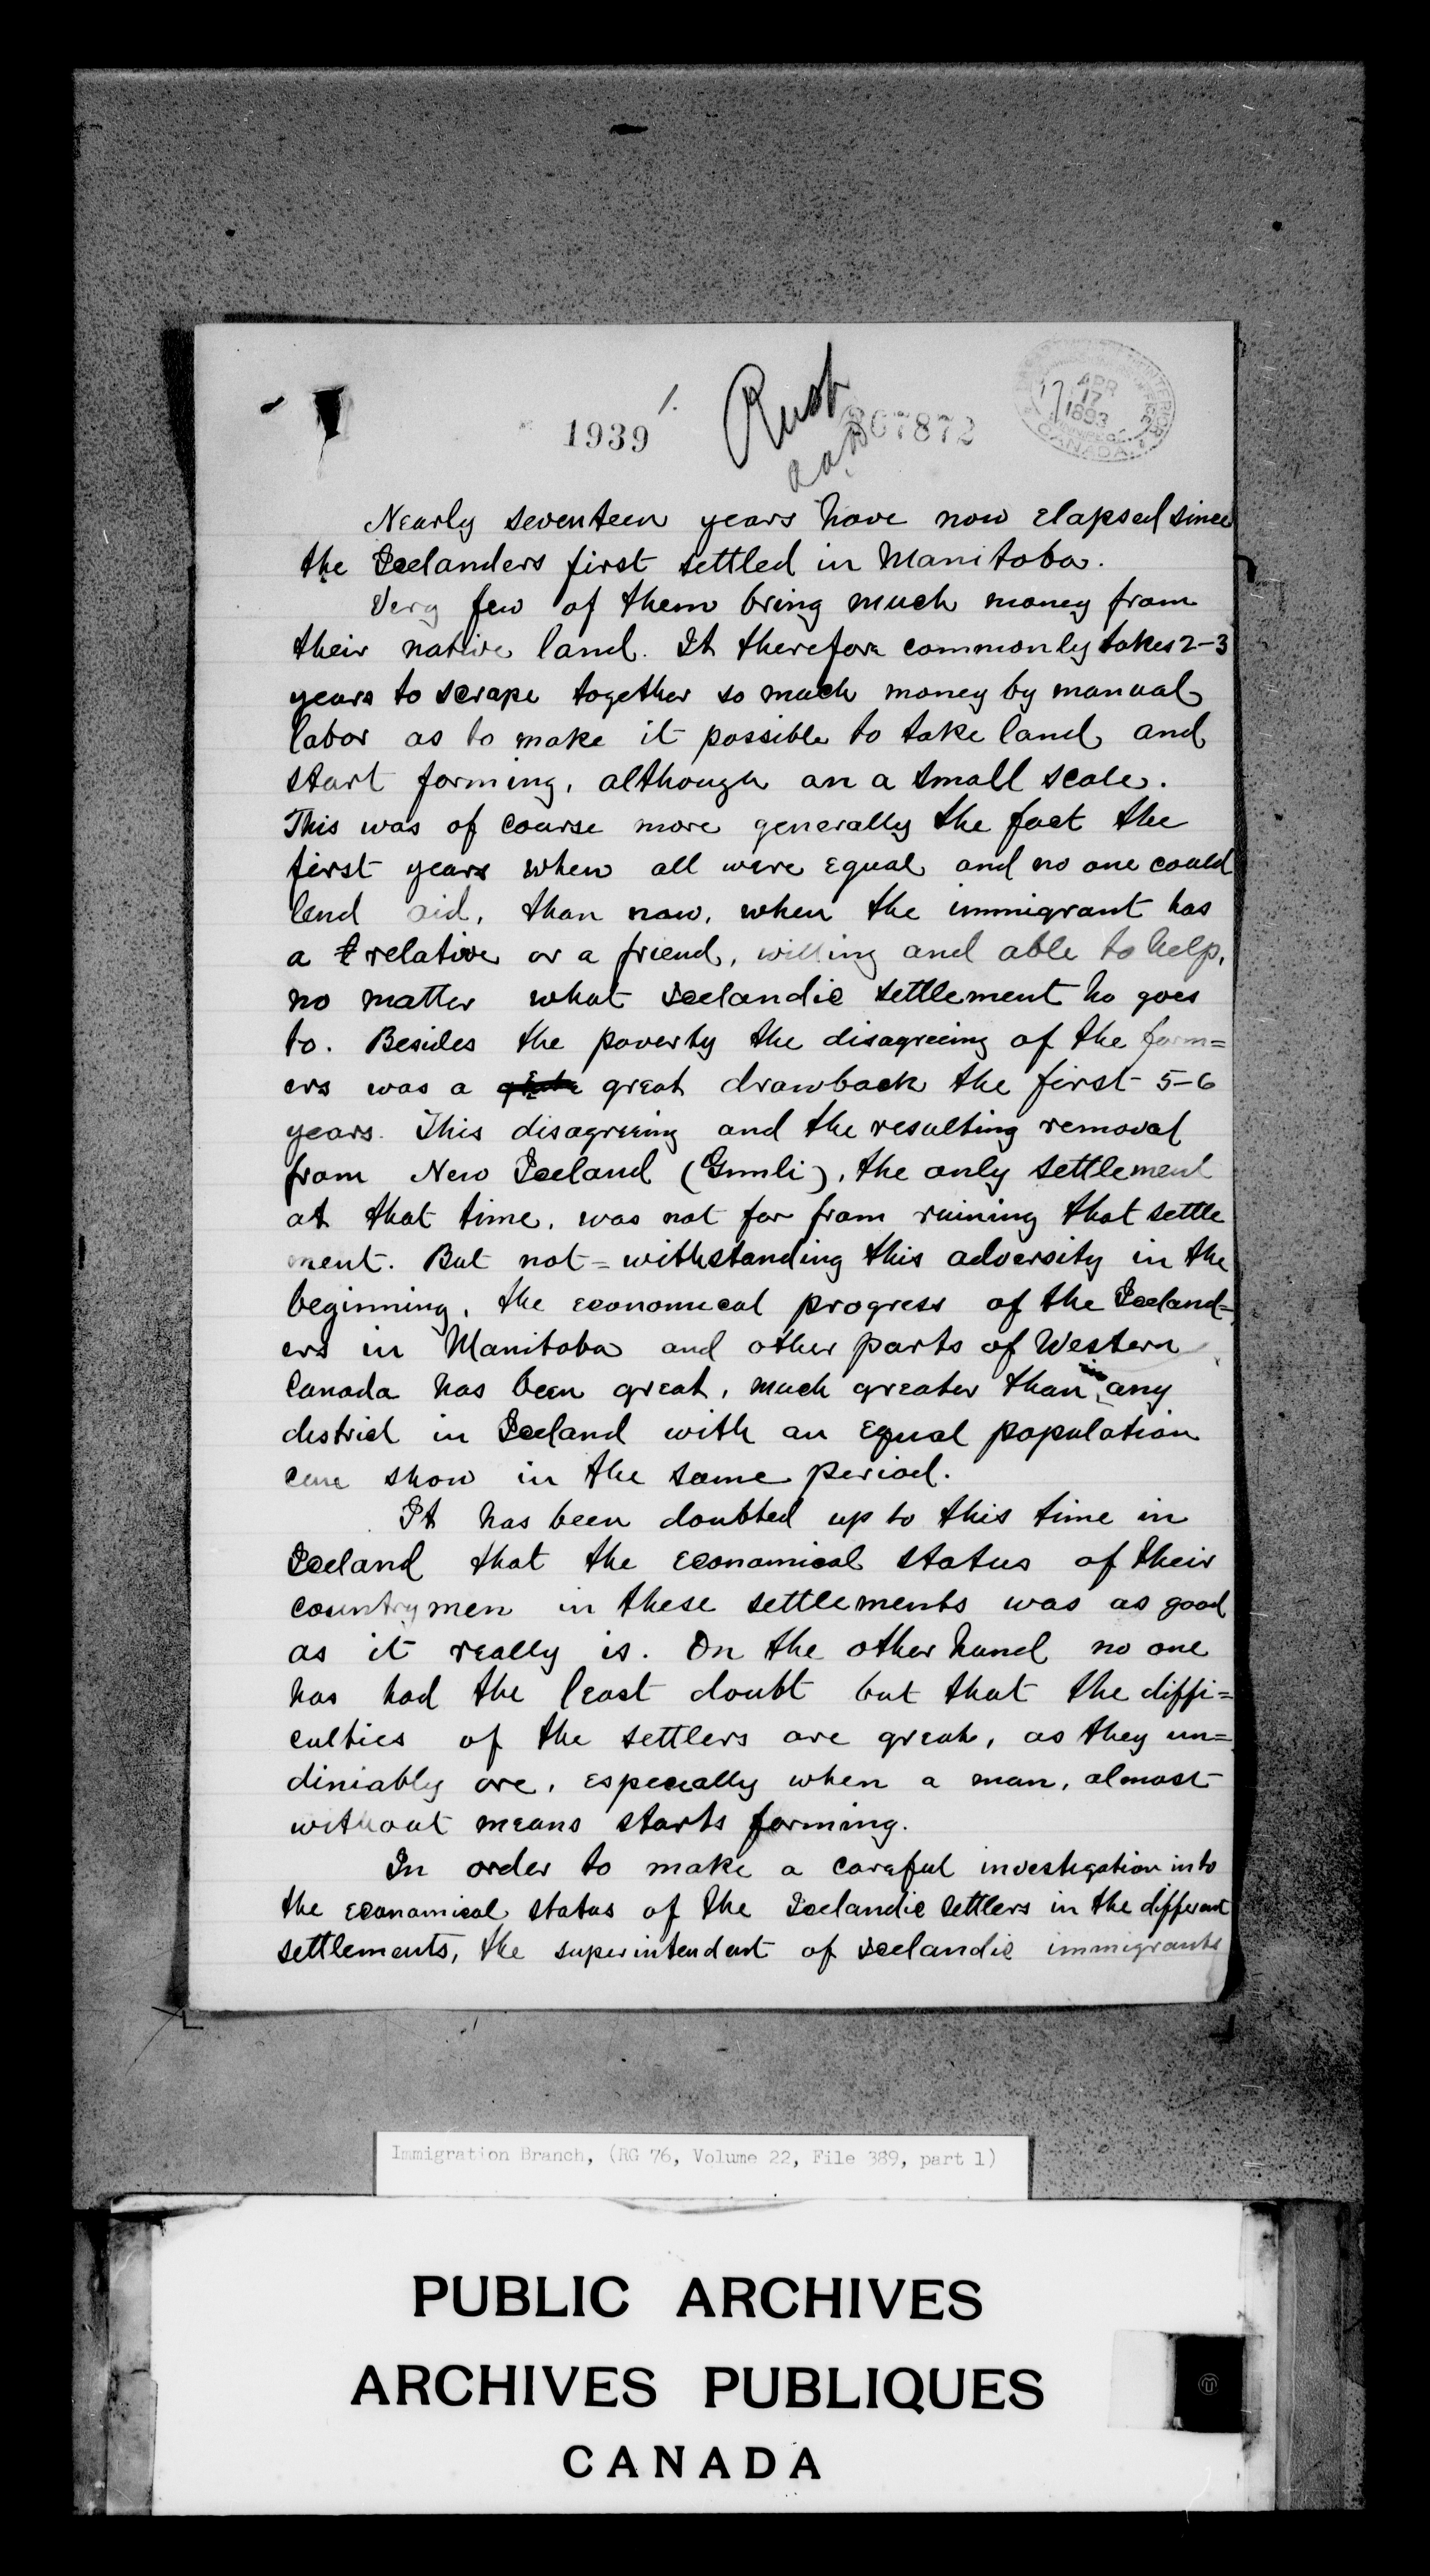 1.
1939
Rush
307872
APR
17
1893
CANADA
Nearly seventeen years have now elapsed since
the Icelanders first settled in Manitoba.
Very few of them bring much money from
their native land. It therefore commonly takes 2-3
years to scrape together so much money by manual
labor as to make it possible to take land and
start farming, although on a small scale.
This was of course more generally the fact the
first years when all were equal and no one could
lend aid, than now, when the immigrant has
a relative or a friend, willing and able to help,
no matter what icelandic settlement he goes
to. Besides the poverty the disagreeing of the farm=
ers was a great drawback the first 5-6
years. This disagreeing and the resulting removal
from New Iceland (Gimli), the only settlement
at that time, was not far from ruining that settle
ment. But not=withstanding this adversity in the
beginning, the economical progress of the Iceland=
ers in Manitoba and other parts of Western
Canada has been great, much greater than in any
district in Iceland with an equal population
can show in the same period.
It has been doubted up to this time in
Iceland that the economical status of their
countrymen in these settlements was as good
as it really is. On the other hand no one
has had the least doubt but that the diffi=
culties of the settlers are great, as they un=
diniably are, especially when a man, almost
without means starts farming.
In order to make a careful investigation into
the economical status of the Icelandic settlers in the different
settlements, the superintendent of icelandic immigrants
Immigration Branch, (RG 76, Volume 22, File 389, part 1)
PUBLIC ARCHIVES
ARCHIVES PUBLIQUES
CANADA